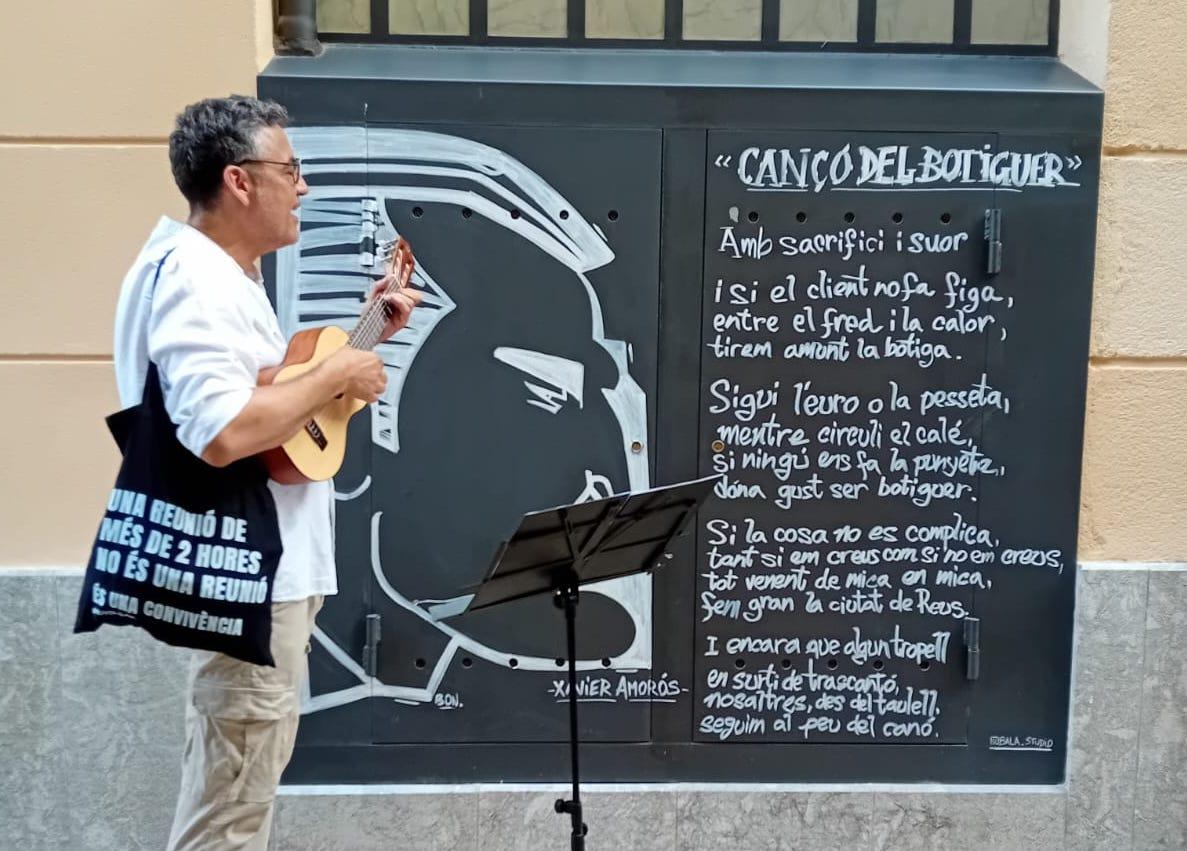 “CANÇÓ DEL BOTIGUER”
Amb sacrifici i suor
i si el client no fa figa,
entre el fred i la calor,
tirem amunt la botiga.
Sigui l'euro o la pesseta,
mentre circuli el calé,
si ningú ens fa la punyeta,
dóna gust ser botiguer.
Si la cosa no es complica,
tant si em creus com si no em creus,
tot venent de mica en mica,
fem gran la ciutat de Reus.
I encara que algun tropell
en surti de trascantó,
nosaltres, des del taulell,
seguim al peu del canó.
-XAVIER AMORÓS-
BON.
@BALA_STUDIO
UNA REUNIÓ DE
MÉS DE 2 HORES
NO ÉS UNA REUNIÓ
ÉS UNA CONVIVÈNCIA